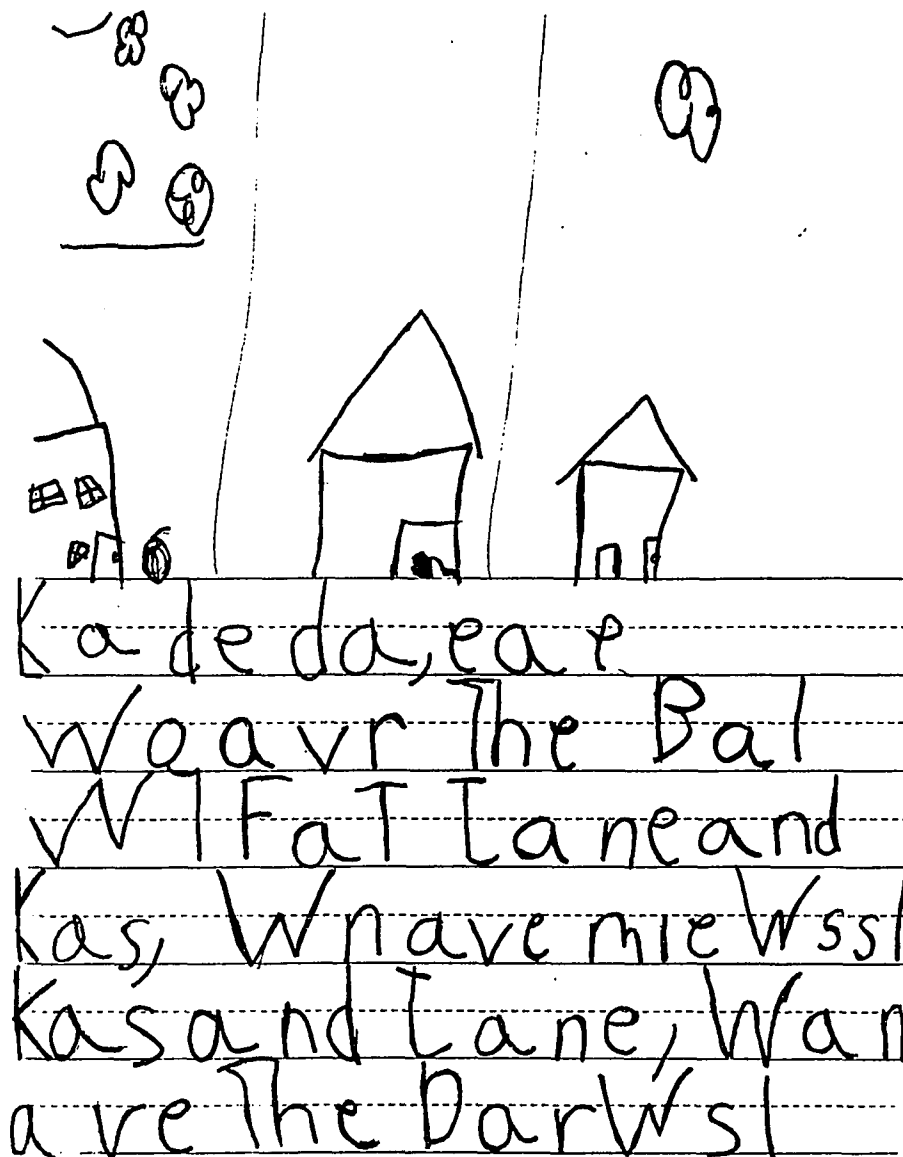 Ka de da, eae
weavr The Bal
WI FaT Taneand
Kas, Wnavemie Wssl
Kasand Tane, Wan
ave The DarWsl